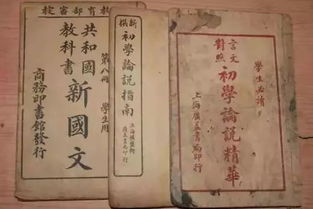 教育部審定
共和國
教科書
新國文
第八冊
學生用
商務印書館發行
新撰
初學論說指南
上海廣益書局印行
言文
對照
初學論說精華
學生必讀
上海廣益書局印行